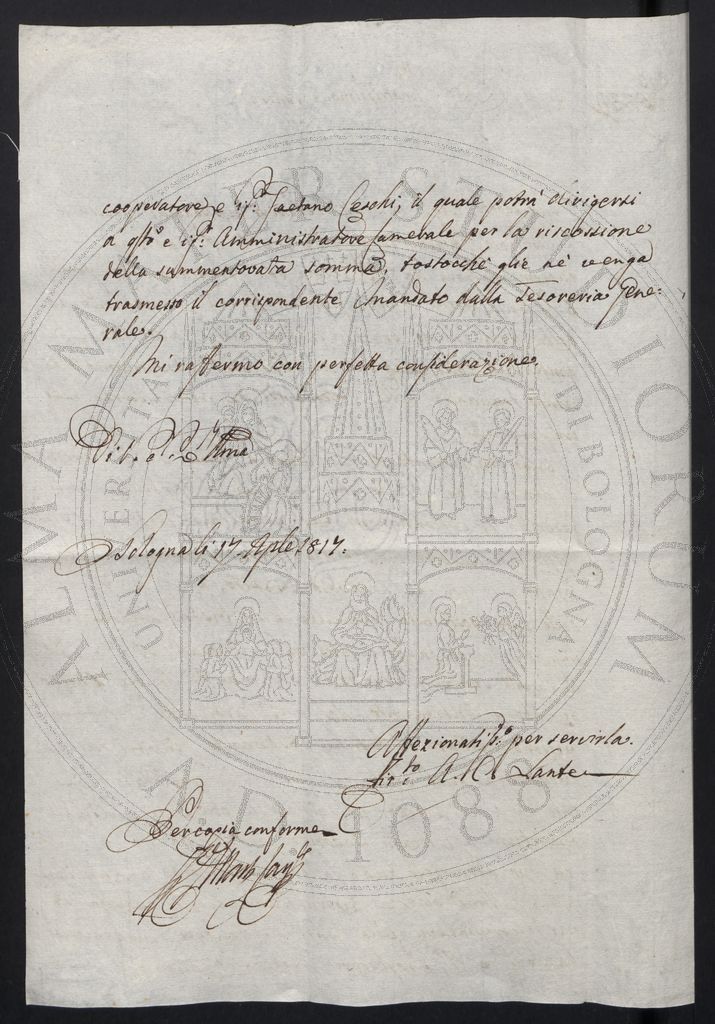 cooperatore, e il Sr. Gaetano Ceschi, il quale potrà dirigersi
a qto. e il Sr. Amministratore Camerale per la riscossione
della summentovata somma, tostocchè glie nè venga
trasmesso il corrispondente Mandato dalla Tesoreria Gene:
rale.
Mi raffermo con perfetta considerazione.
Di V. S. Illma
Bologna li 17. Aple 1817.
Affezionatiss.o per servirla.
firto A. Lante
Per copia conforme
ALMA MATER STUDIORUM
UNIVERSITÀ DI BOLOGNA
A.D. 1088